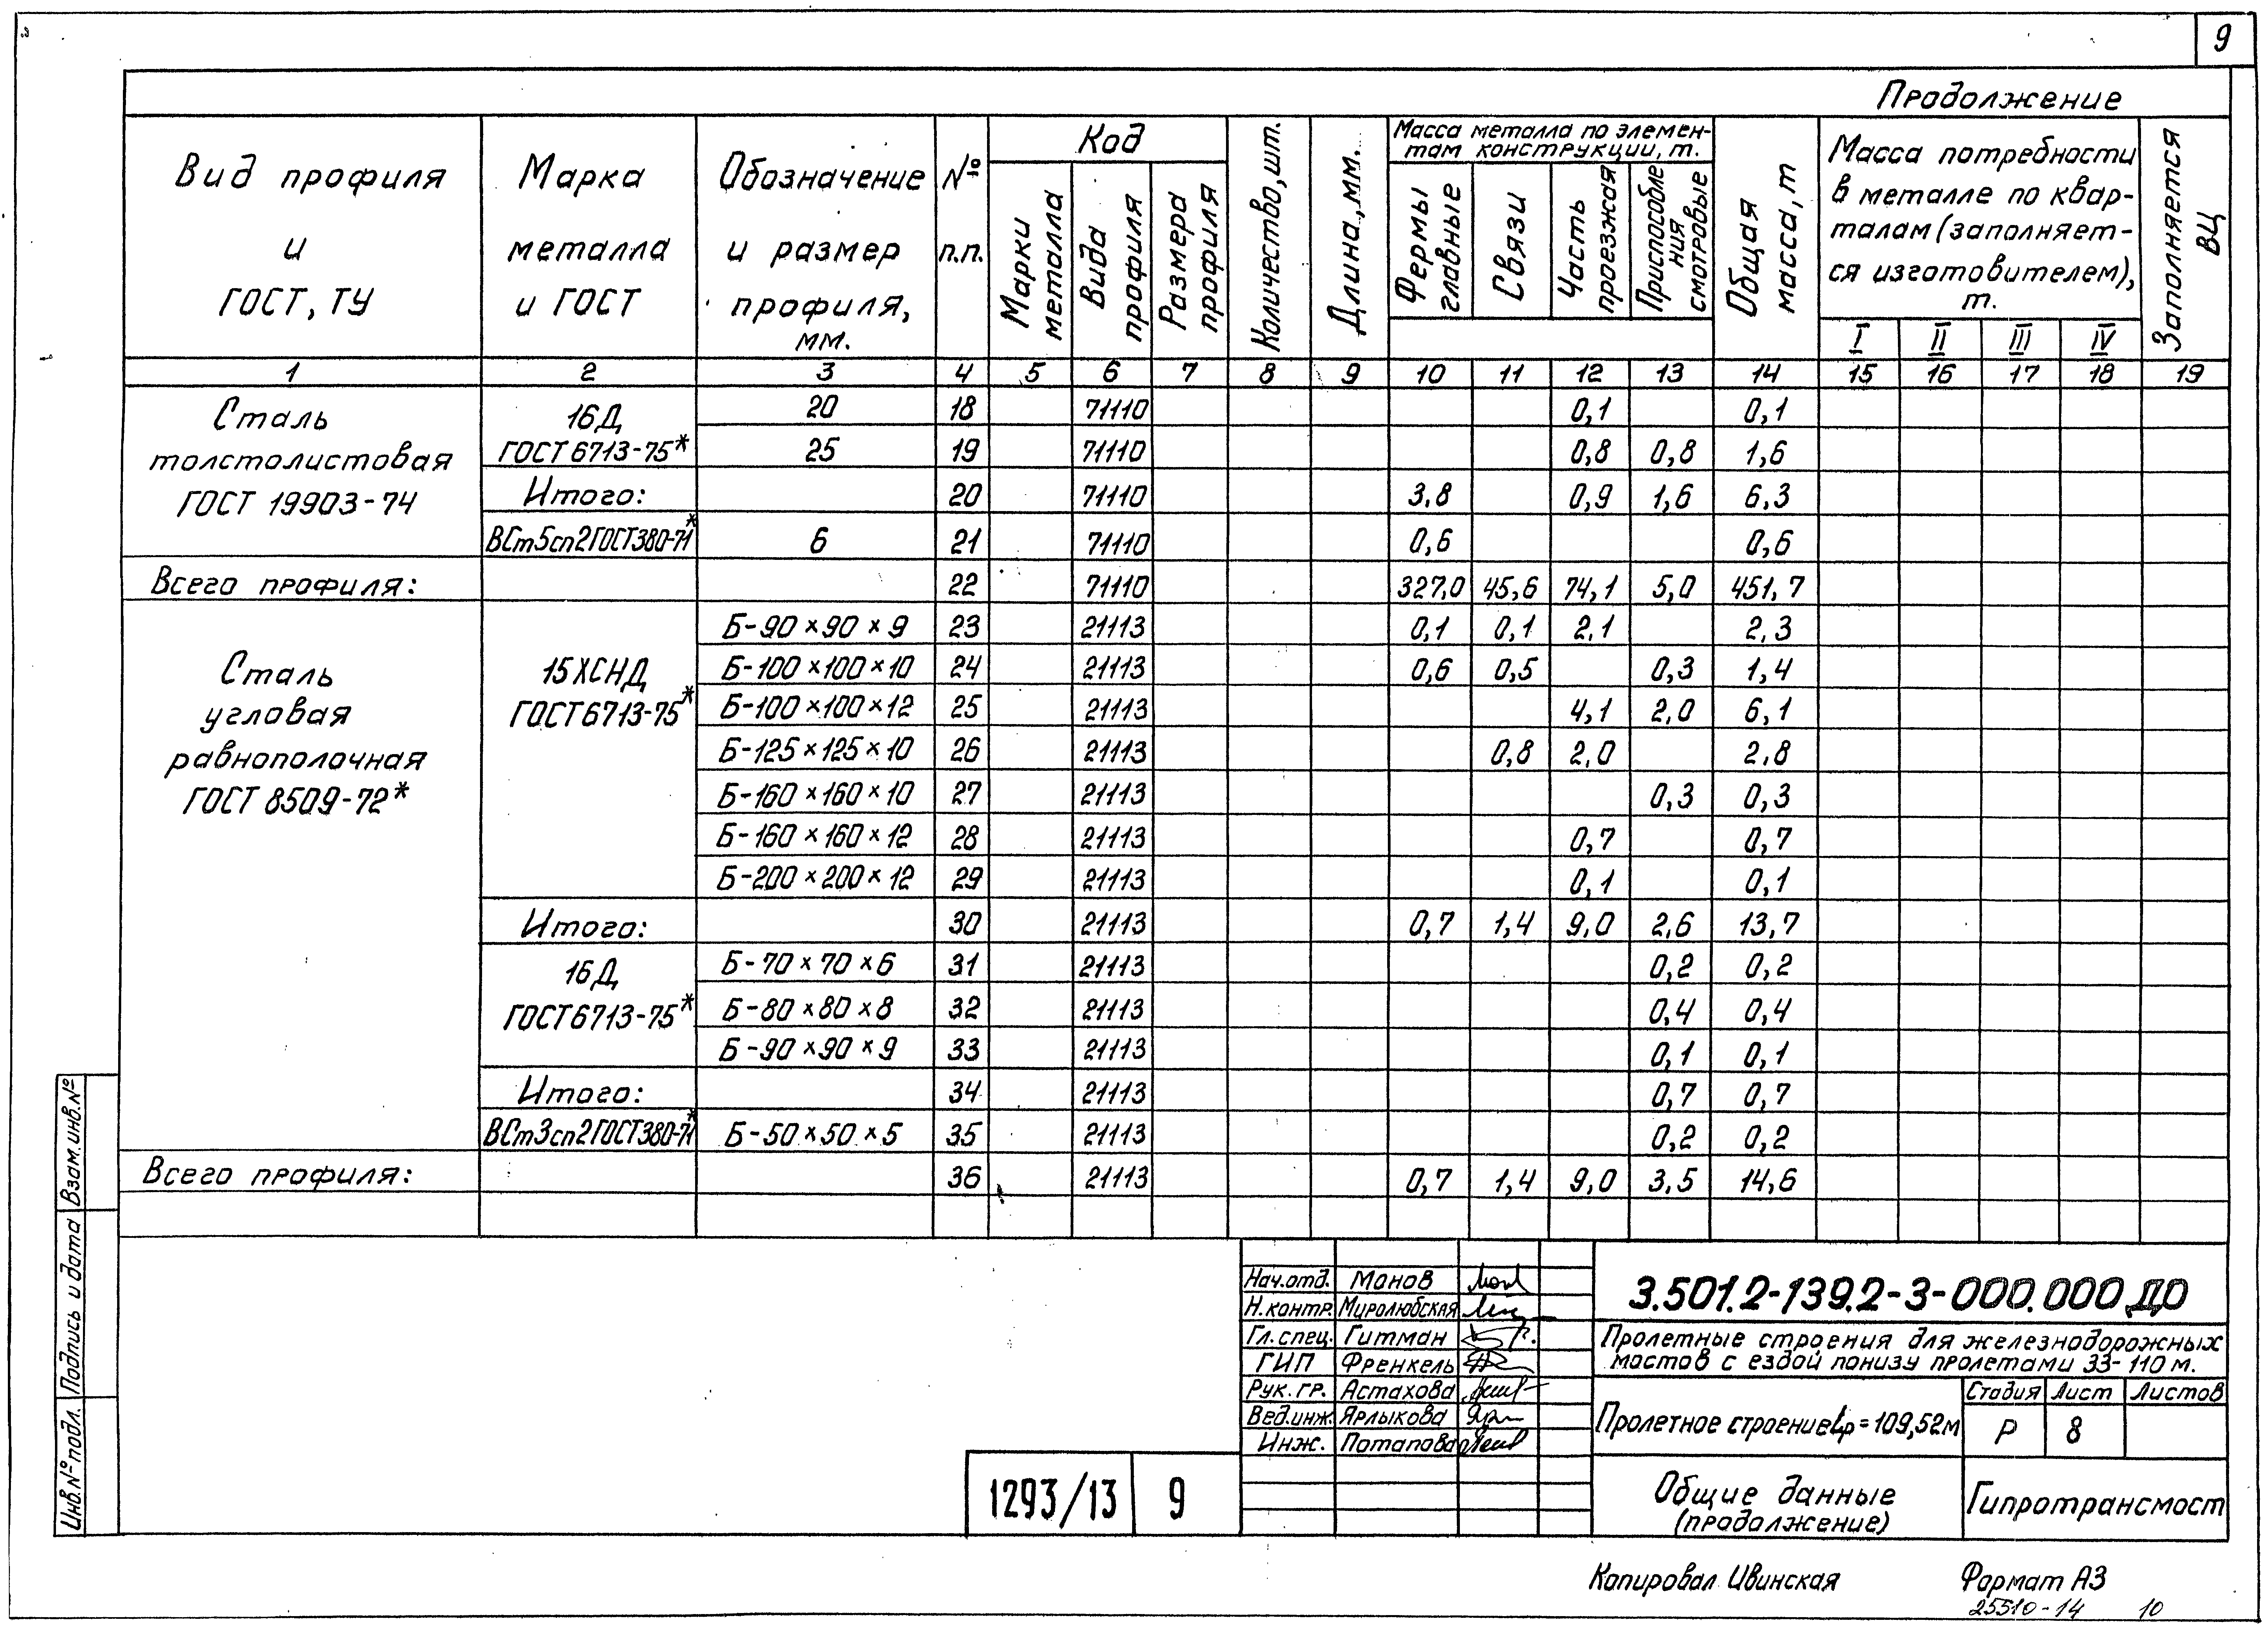 9
Продолжение
Вид профиля и ГОСТ, ТУ
Марка металла и ГОСТ
Обозначение и размер профиля, мм.
№ п.п.
Код
Марки металла
Вида профиля
Размера профиля
Количество, шт.
Длина, мм.
Масса металла по элемен-
там конструкции, т.
Фермы главные
Связи
Часть проезжая
Приспособле
ния
смотровые
Общая масса, т
Масса потребности
в металле по квар-
талам (заполняет-
ся изготовителем),
т.
I II III IV
Заполняется ВЦ
1 2 3 4 5 6 7 8 9 10 11 12 13 14 15 16 17 18 19
Сталь
толстолистовая
ГОСТ 19903-74
16Д
ГОСТ 6713-75*
20 18 71110 0,1 0,1
25 19 71110 0,8 0,8 1,6
Итого: 20 71110 3,8 0,9 1,6 6,3
ВСт5сп2 ГОСТ 380-71* 6 21 71110 0,6 0,6
Всего профиля: 22 71110 327,0 45,6 74,1 5,0 451,7
Сталь
угловая
равнополочная
ГОСТ 8509-72*
15ХСНД
ГОСТ 6713-75*
Б-90×90×9 23 21113 0,1 0,1 2,1 2,3
Б-100×100×10 24 21113 0,6 0,5 0,3 1,4
Б-100×100×12 25 21113 4,1 2,0 6,1
Б-125×125×10 26 21113 0,8 2,0 2,8
Б-160×160×10 27 21113 0,3 0,3
Б-160×160×12 28 21113 0,7 0,7
Б-200×200×12 29 21113 0,1 0,1
Итого: 30 21113 0,7 1,4 9,0 2,6 13,7
16Д
ГОСТ 6713-75*
Б-70×70×6 31 21113 0,2 0,2
Б-80×80×8 32 21113 0,4 0,4
Б-90×90×9 33 21113 0,1 0,1
Итого: 34 21113 0,7 0,7
ВСт3сп2 ГОСТ 380-71* Б-50×50×5 35 21113 0,2 0,2
Всего профиля: 36 21113 0,7 1,4 9,0 3,5 14,6
Взам.инв.№
Подпись и дата
Инв.№ подл.
Нач.отд. Монов
Н.контр. Миролюбская
Гл.спец. Гитман
ГИП Френкель
Рук.гр. Астахова
Вед.инж. Ярлыкова
Инж. Потапова
3.501.2-139.2-3-000.000 ДО
Пролетные строения для железнодорожных
мостов с ездой понизу пролетами 33-110 м.
Пролетное строение Lр = 109,52м
Стадия Лист Листов
Р 8
Общие данные
(продолжение)
Гипротрансмост
1293/13 9
Копировал Ивинская
Формат А3
25510-14 10